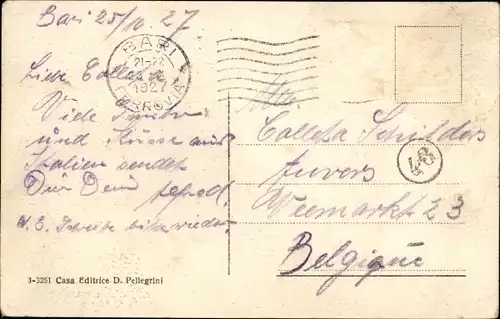 Bari 25/10. 27
BARI
21-22
1927
FERROVIA
Liebe
Viele
und Küsse aus
Italien sendet
Dir Dein
N. S. Schreibe bitte wieder.
Schilders
Anvers
Veemarkt 23
Belgique
3-3251 Casa Editrice D. Pellegrini